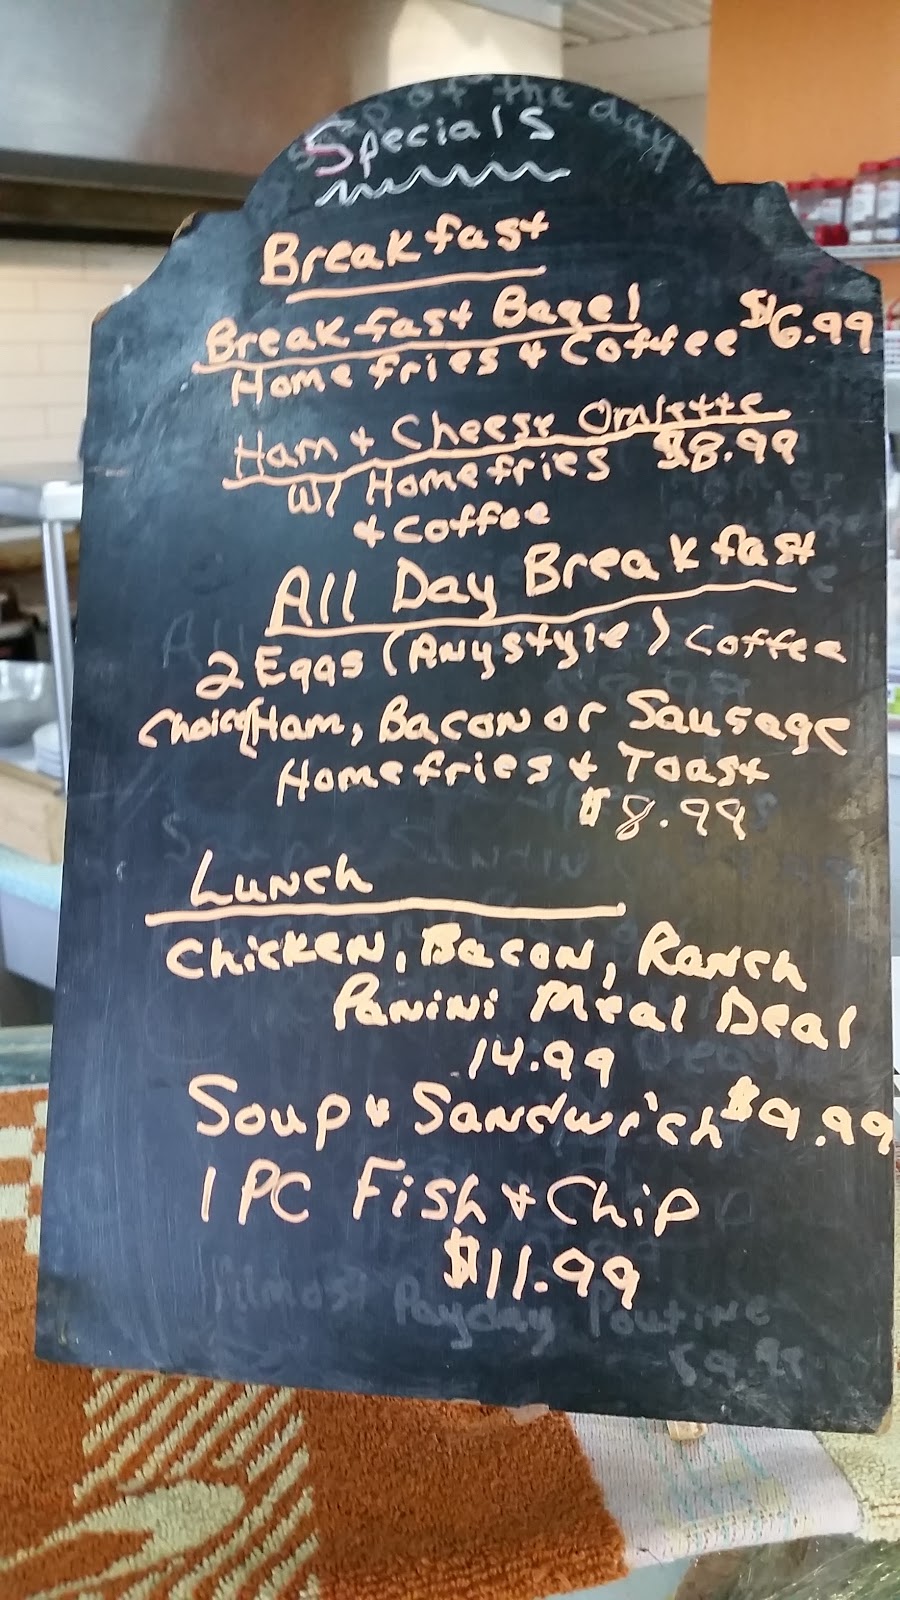 Soup of the day
Specials
Breakfast
Breakfast Bagel $6.99
Homefries + Coffee
Ham + Cheese Omlette
W/ Homefries $8.99
+ Coffee
All Day Breakfast
2 Eggs (Anystyle) Coffee
Choice of Ham, Bacon or Sausage
Homefries + Toast
$8.99
Lunch
Chicken, Bacon, Ranch
Panini Meal Deal
14.99
Soup + Sandwich $9.99
1 PC Fish + Chip
$11.99
Almost Payday Poutine
$9.99